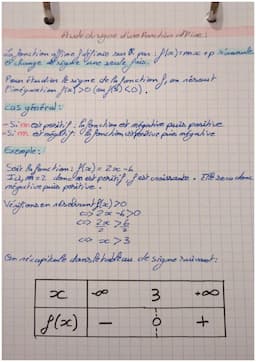 Étude du signe d'une fonction affine :
La fonction affine définie sur ℝ par f(x)=mx+p s'annule
et change de signe une seule fois.
Pour étudier le signe de la fonction f, on résout
l'inéquation f(x)>0 (ou f(x)<0).
Cas général :
- Si m est positif : la fonction est négative puis positive.
- Si m est négatif : la fonction est positive puis négative
Exemple :
Soit la fonction : f(x) = 2x-6
Ici, m=2 donc m est positif, f est croissante. Elle sera donc
négative puis positive.
Vérifions en résolvant f(x)>0
⇔ 2x-6>0
⇔ 2x/2 > 6/2
⇔ x>3
On récapitule dans le tableau de signe suivant :
x -∞ 3 +∞
f(x) - 0 +